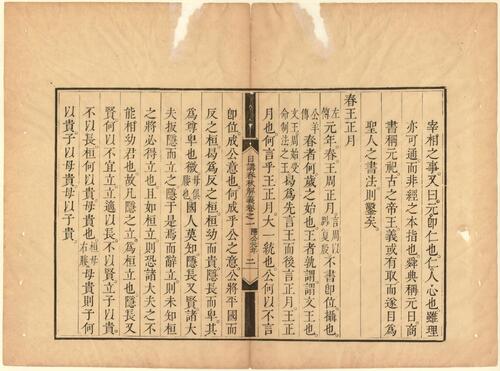 宰相之事又曰元卽仁也仁人心也雖理
亦可通而非經之本指也舜典稱元日商
書稱元祀古之帝王義或有取而遂目爲
聖人之書法則鑿矣
春王正月
左傳元年春王周正月言周以別夏殷不書卽位攝也
公羊傳春者何歲之始也王者孰謂謂文王也
文王周始受命制法之王曷爲先言王而後言正月王正
月也何言乎王正月大一統也公何以不言
日講春秋解義卷之一 隱公元年 二
卽位成公意也何成乎公之意公將平國而
反之桓曷爲反之桓桓幼而貴隱長而卑其
爲尊卑也微母俱媵也國人莫知隱長又賢諸大
夫扳隱而立之隱于是焉而辭立則未知桓
之將必得立也且如桓立則恐諸大夫之不
能相幼君也故凡隱之立爲桓立也隱長又
賢何以不宜立立適以長不以賢立子以貴
不以長桓何以貴母貴也桓母右媵母貴則子何
以貴子以母貴母以子貴